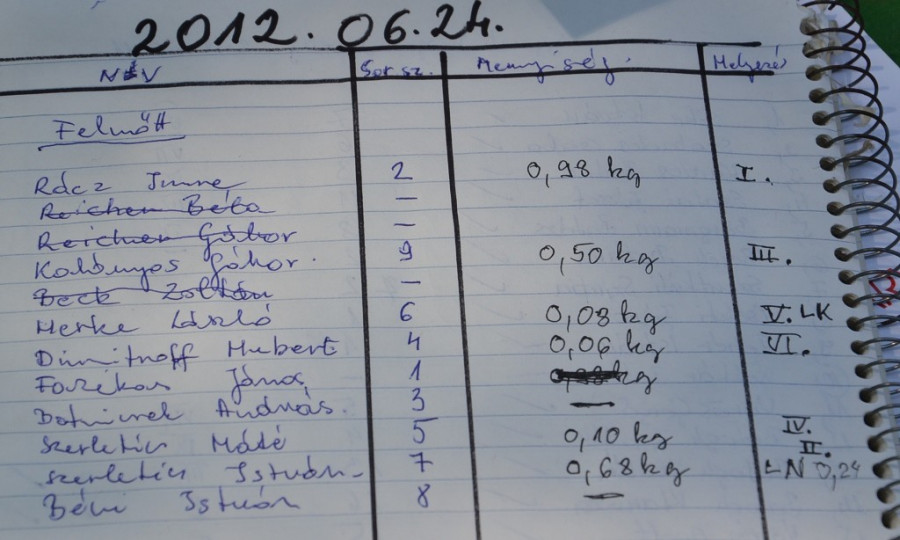 2012. 06. 24.
NÉV Sorsz. Mennyiség. Helyezés
Felnőtt
Rácz Imre 2 0,98 kg I.
Reicher Béla —
Reicher Gábor —
Gábor. 9 0,50 kg III.
Beck Zoltán —
Herke László 6 0,08 kg V. LK
Dimitroff Hubert 4 0,06 kg VI.
Fazekas János 1 kg
András. 3 —
Szerletics Máté 5 0,10 kg IV.
Szerletics István 7 0,68 kg II. LN 0,24
István 8 —